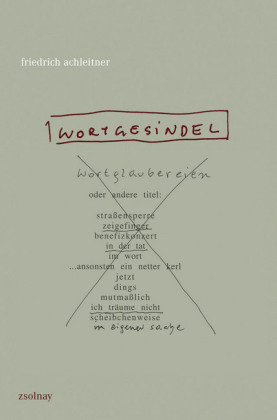 friedrich achleitner
wortgesindel
wortglaubereien
oder andere titel:
straßensperre
zeigefinger
benefizkonzert
in der tat
im wort
...ansonsten ein netter kerl
jetzt
dings
mutmaßlich
ich träume nicht
scheibchenweise
in eigener sache
zsolnay